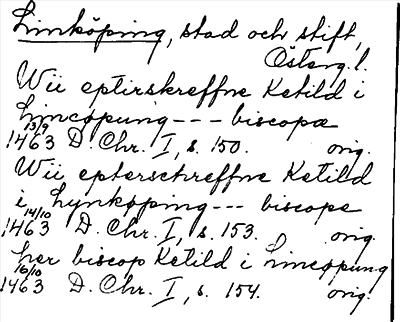 Linköping, stad och stift,
Österg. l.
Wii eptirskreffne Ketild i
Lincøpung --- biscopæ
13/9
1463 D. Chr. I, s. 150. orig.
Wii epterschreffne Ketild
i Lynkøping --- biscope
14/10
1463 D. Chr. I, s. 153. orig.
her biscop Ketild i Lincøpung
16/10
1463 D. Chr. I, s. 154. orig.